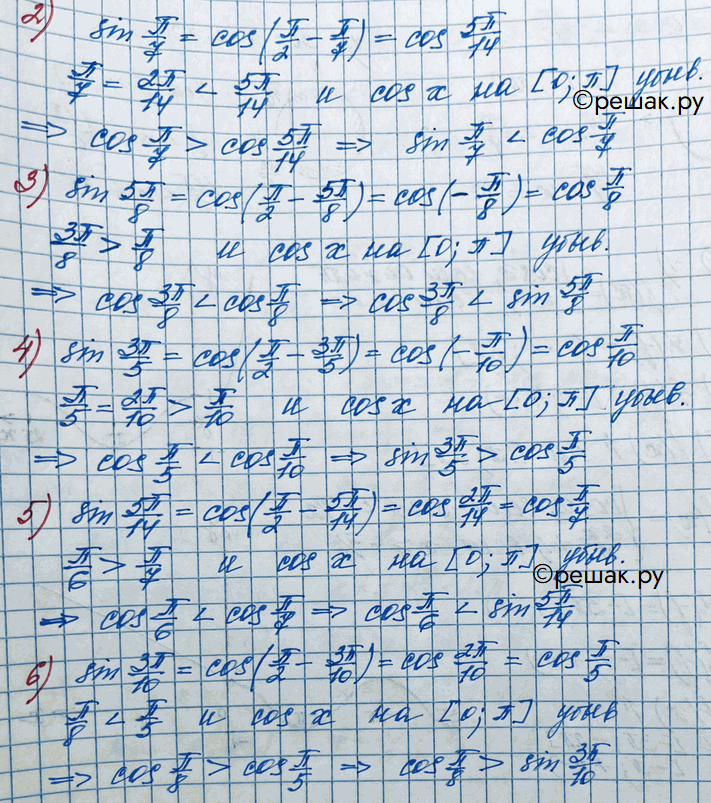 2) sin π/7 = cos(π/2 − π/7) = cos 5π/14
π/7 = 2π/14 < 5π/14 и cos x на [0; π] убыв.
©решак.ру
=> cos π/7 > cos 5π/14 => sin π/7 < cos π/7
3) sin 5π/8 = cos(π/2 − 5π/8) = cos(−π/8) = cos π/8
3π/8 > π/8 и cos x на [0; π] убыв.
=> cos 3π/8 < cos π/8 => cos 3π/8 < sin 5π/8
4) sin 3π/5 = cos(π/2 − 3π/5) = cos(−π/10) = cos π/10
π/5 = 2π/10 > π/10 и cos x на [0; π] убыв.
=> cos π/5 < cos π/10 => sin 3π/5 > cos π/5
5) sin 5π/14 = cos(π/2 − 5π/14) = cos 2π/14 = cos π/7
π/6 > π/7 и cos x на [0; π] убыв.
©решак.ру
=> cos π/6 < cos π/7 => cos π/6 < sin 5π/14
6) sin 3π/10 = cos(π/2 − 3π/10) = cos 2π/10 = cos π/5
π/8 < π/5 и cos x на [0; π] убыв
=> cos π/8 > cos π/5 => cos π/8 > sin 3π/10